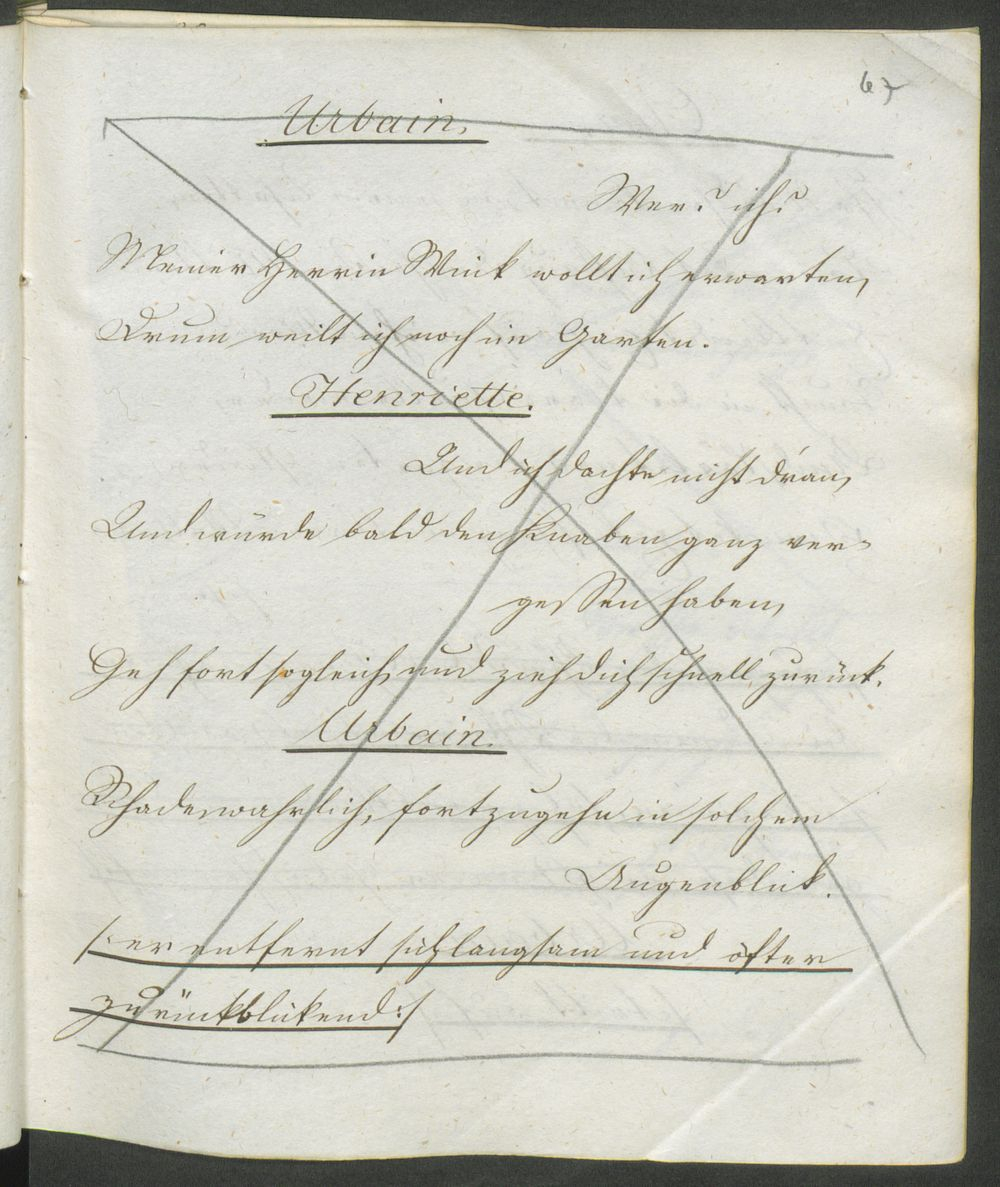 67
Urbain.
Wer? ich?
Meiner Herrin Wink wollt ich erwarten,
Drum weilt ich noch im Garten.
Henriette.
Und ich dachte nicht dran,
Und würde bald den Knaben ganz ver=
gessen haben,
Geh fort sogleich, und zieh dich schnell zurück.
Urbain.
Schade wahrlich, fortzugehn in solchem
Augenblick.
/: er entfernt sich langsam und öfter
zurückblickend :/